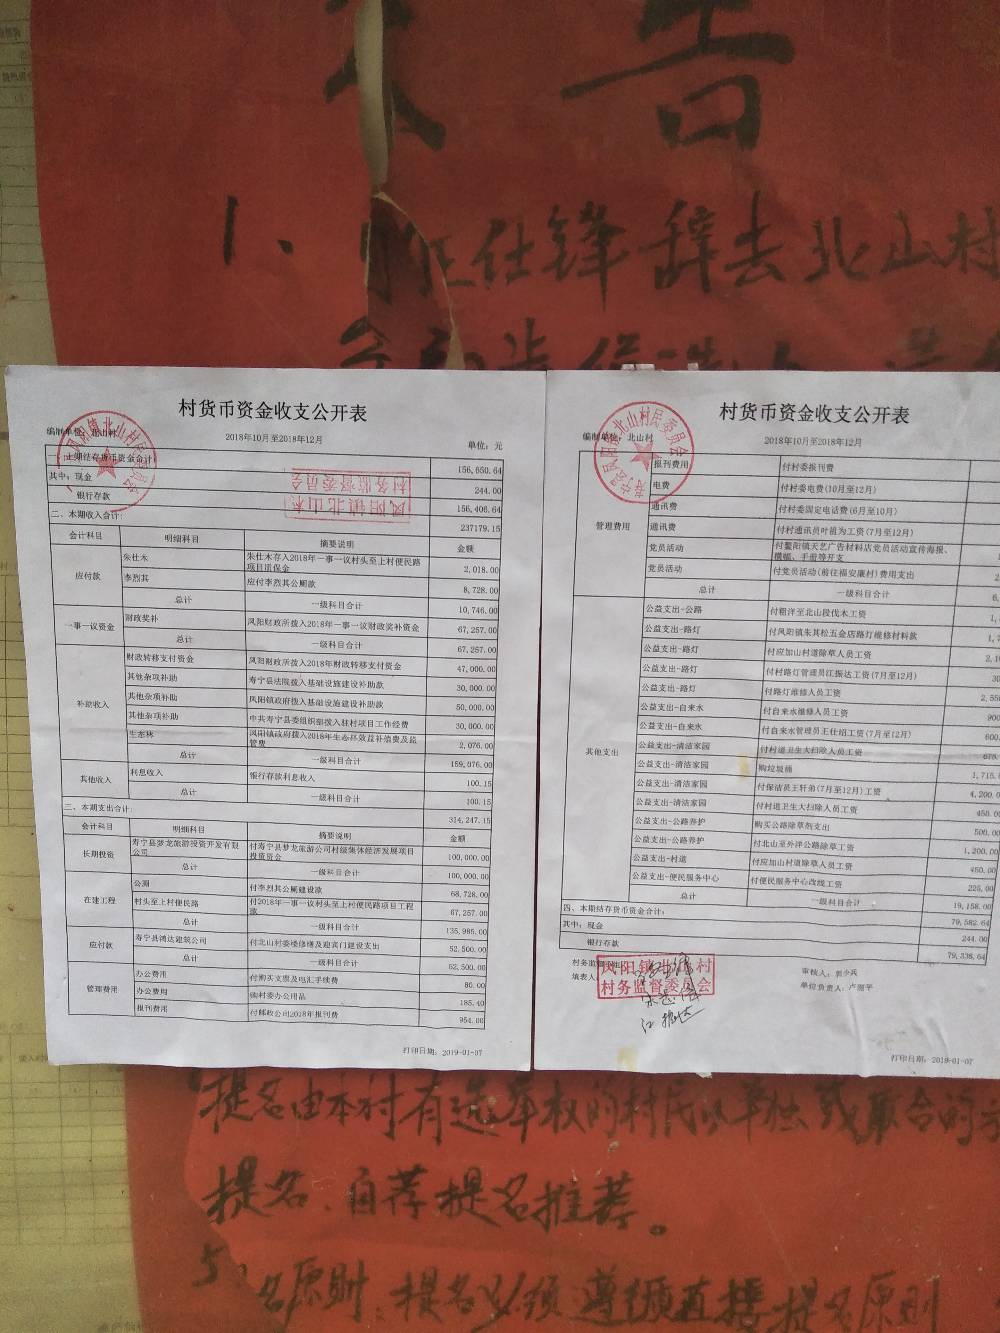 告
1、
任仕锋辞去北山村
村货币资金收支公开表
编制单位：北山村
2018年10月至2018年12月
单位：元
一、上期结存货币资金合计 156,650.64
其中：现金 244.00
银行存款 156,406.64
二、本期收入合计： 237179.15
会计科目 明细科目 摘要说明 金额
应付款 朱仕木 朱仕木存入2018年一事一议村头至上村便民路项目质保金 2,018.00
李烈其 应付李烈其公厕款 8,728.00
总计 一级科目合计 10,746.00
一事一议资金 财政奖补 凤阳财政所拨入2018年一事一议财政奖补资金 67,257.00
总计 一级科目合计 67,257.00
补助收入 财政转移支付资金 凤阳财政所拨入2018年财政转移支付资金 47,000.00
其他杂项补助 寿宁县法院拨入基础设施建设补助款 30,000.00
其他杂项补助 凤阳镇政府拨入基础设施建设补助款 50,000.00
其他杂项补助 中共寿宁县委组织部拨入驻村项目工作经费 30,000.00
生态林 凤阳镇政府拨入2018年生态林效益补偿费及监管费 2,076.00
总计 一级科目合计 159,076.00
其他收入 利息收入 银行存款利息收入 100.15
总计 一级科目合计 100.15
三、本期支出合计： 314,247.15
会计科目 明细科目 摘要说明 金额
长期投资 寿宁县梦龙旅游投资开发有限公司 付寿宁县梦龙旅游公司村级集体经济发展项目投资资金 100,000.00
总计 一级科目合计 100,000.00
在建工程 公厕 付李烈其公厕建设款 68,728.00
村头至上村便民路 付2018年一事一议村头至上村便民路项目工程款 67,257.00
总计 一级科目合计 135,985.00
应付款 寿宁县鸿达建筑公司 付北山村委楼修缮及迎宾门建设支出 52,500.00
总计 一级科目合计 52,500.00
管理费用 办公费用 付购买支票及电汇手续费 80.00
办公费用 购村委办公用品 185.40
报刊费用 付邮政公司2018年报刊费 954.00
打印日期：2019-01-07
凤阳镇北山村
村务监督委员会
村货币资金收支公开表
编制单位：北山村
2018年10月至2018年12月
寿宁县凤阳镇北山村民委员会
管理费用 报刊费用 付村委报刊费
电费 付村委电费(10月至12月)
通讯费 付村委固定电话费(6月至10月)
通讯费 付村通讯员叶祖为工资(7月至12月)
党员活动 付鳌阳镇天艺广告材料店党员活动宣传海报、横幅、手册等开支
党员活动 付党员活动(前往福安廉村)费用支出
总计 一级科目合计
其他支出 公益支出-公路 付粗洋至北山段伐木工资
公益支出-路灯 付凤阳镇朱其松五金店路灯维修材料款
公益支出-路灯 付应加山村道除草人员工资
公益支出-路灯 付村路灯管理员江振达工资(7月至12月)
公益支出-路灯 付路灯维修人员工资
公益支出-自来水 付自来水维修人员工资 900
公益支出-自来水 付自来水管理员王仕绍工资(7月至12月) 600.
公益支出-清洁家园 付村道卫生大扫除人员工资 675.
公益支出-清洁家园 购垃圾桶 1,715.
公益支出-清洁家园 付保洁员王轩弟(7月至12月)工资 4,200.0
公益支出-清洁家园 付村道卫生大扫除人员工资 450.00
公益支出-公路养护 购买公路除草剂支出 500.00
公益支出-公路养护 付北山至外洋公路除草工资 1,200.00
公益支出-村道 付应加山村道除草人员工资 450.00
公益支出-便民服务中心 付便民服务中心改线工资 225.00
总计 一级科目合计 19,158.00
四、本期结存货币资金合计： 79,582.64
其中：现金 244.00
银行存款 79,338.64
村务监
填表人
凤阳镇北山村
村务监督委员会
审核人：郭少兵
单位负责人：卢丽平
打印日期：2019-01-07
提名由本村有选举权的村民以单独或联合的
提名、自荐提名推荐。
5、名原则：提名必须遵循直接提名原则